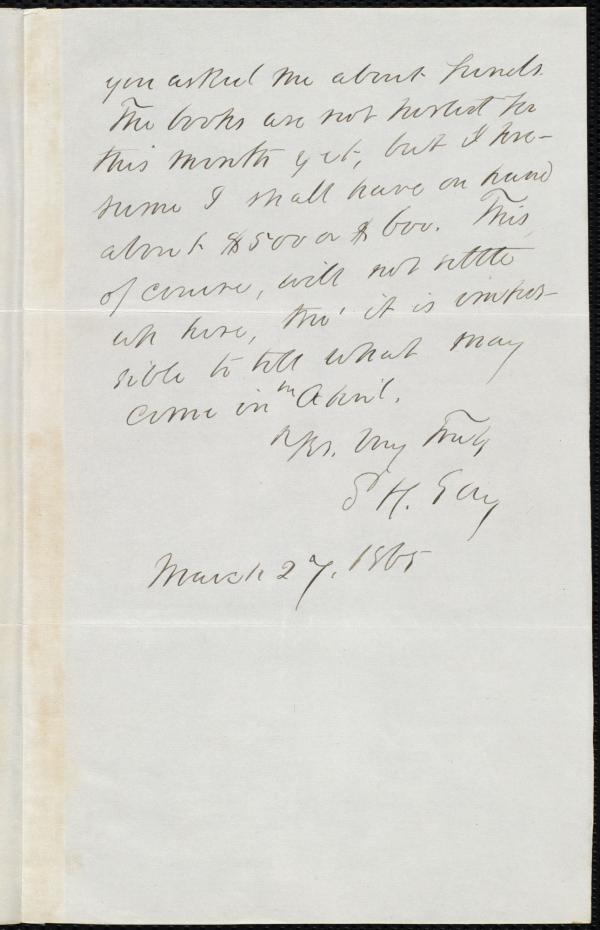 you asked me about funds.
The books are not posted for
this month yet, but I pre-
sume I shall have on hand
about $500 or $600. This,
of course, will not settle
up here, tho' it is impos-
sible to tell what may
come in in April.
Yrs. Very Truly
S H. Gay
March 27, 1865